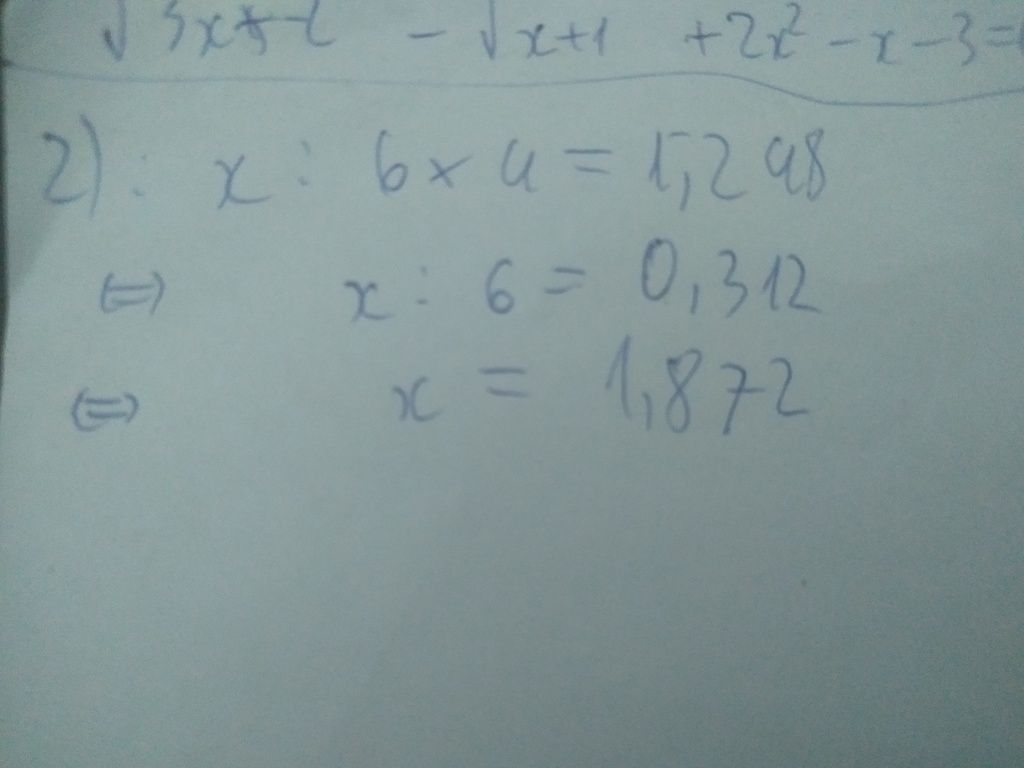 √3x-2 - √x+1 + 2x² - x - 3 =
2): x : 6 × 4 = 1,248
⇔ x : 6 = 0,312
⇔ x = 1,872